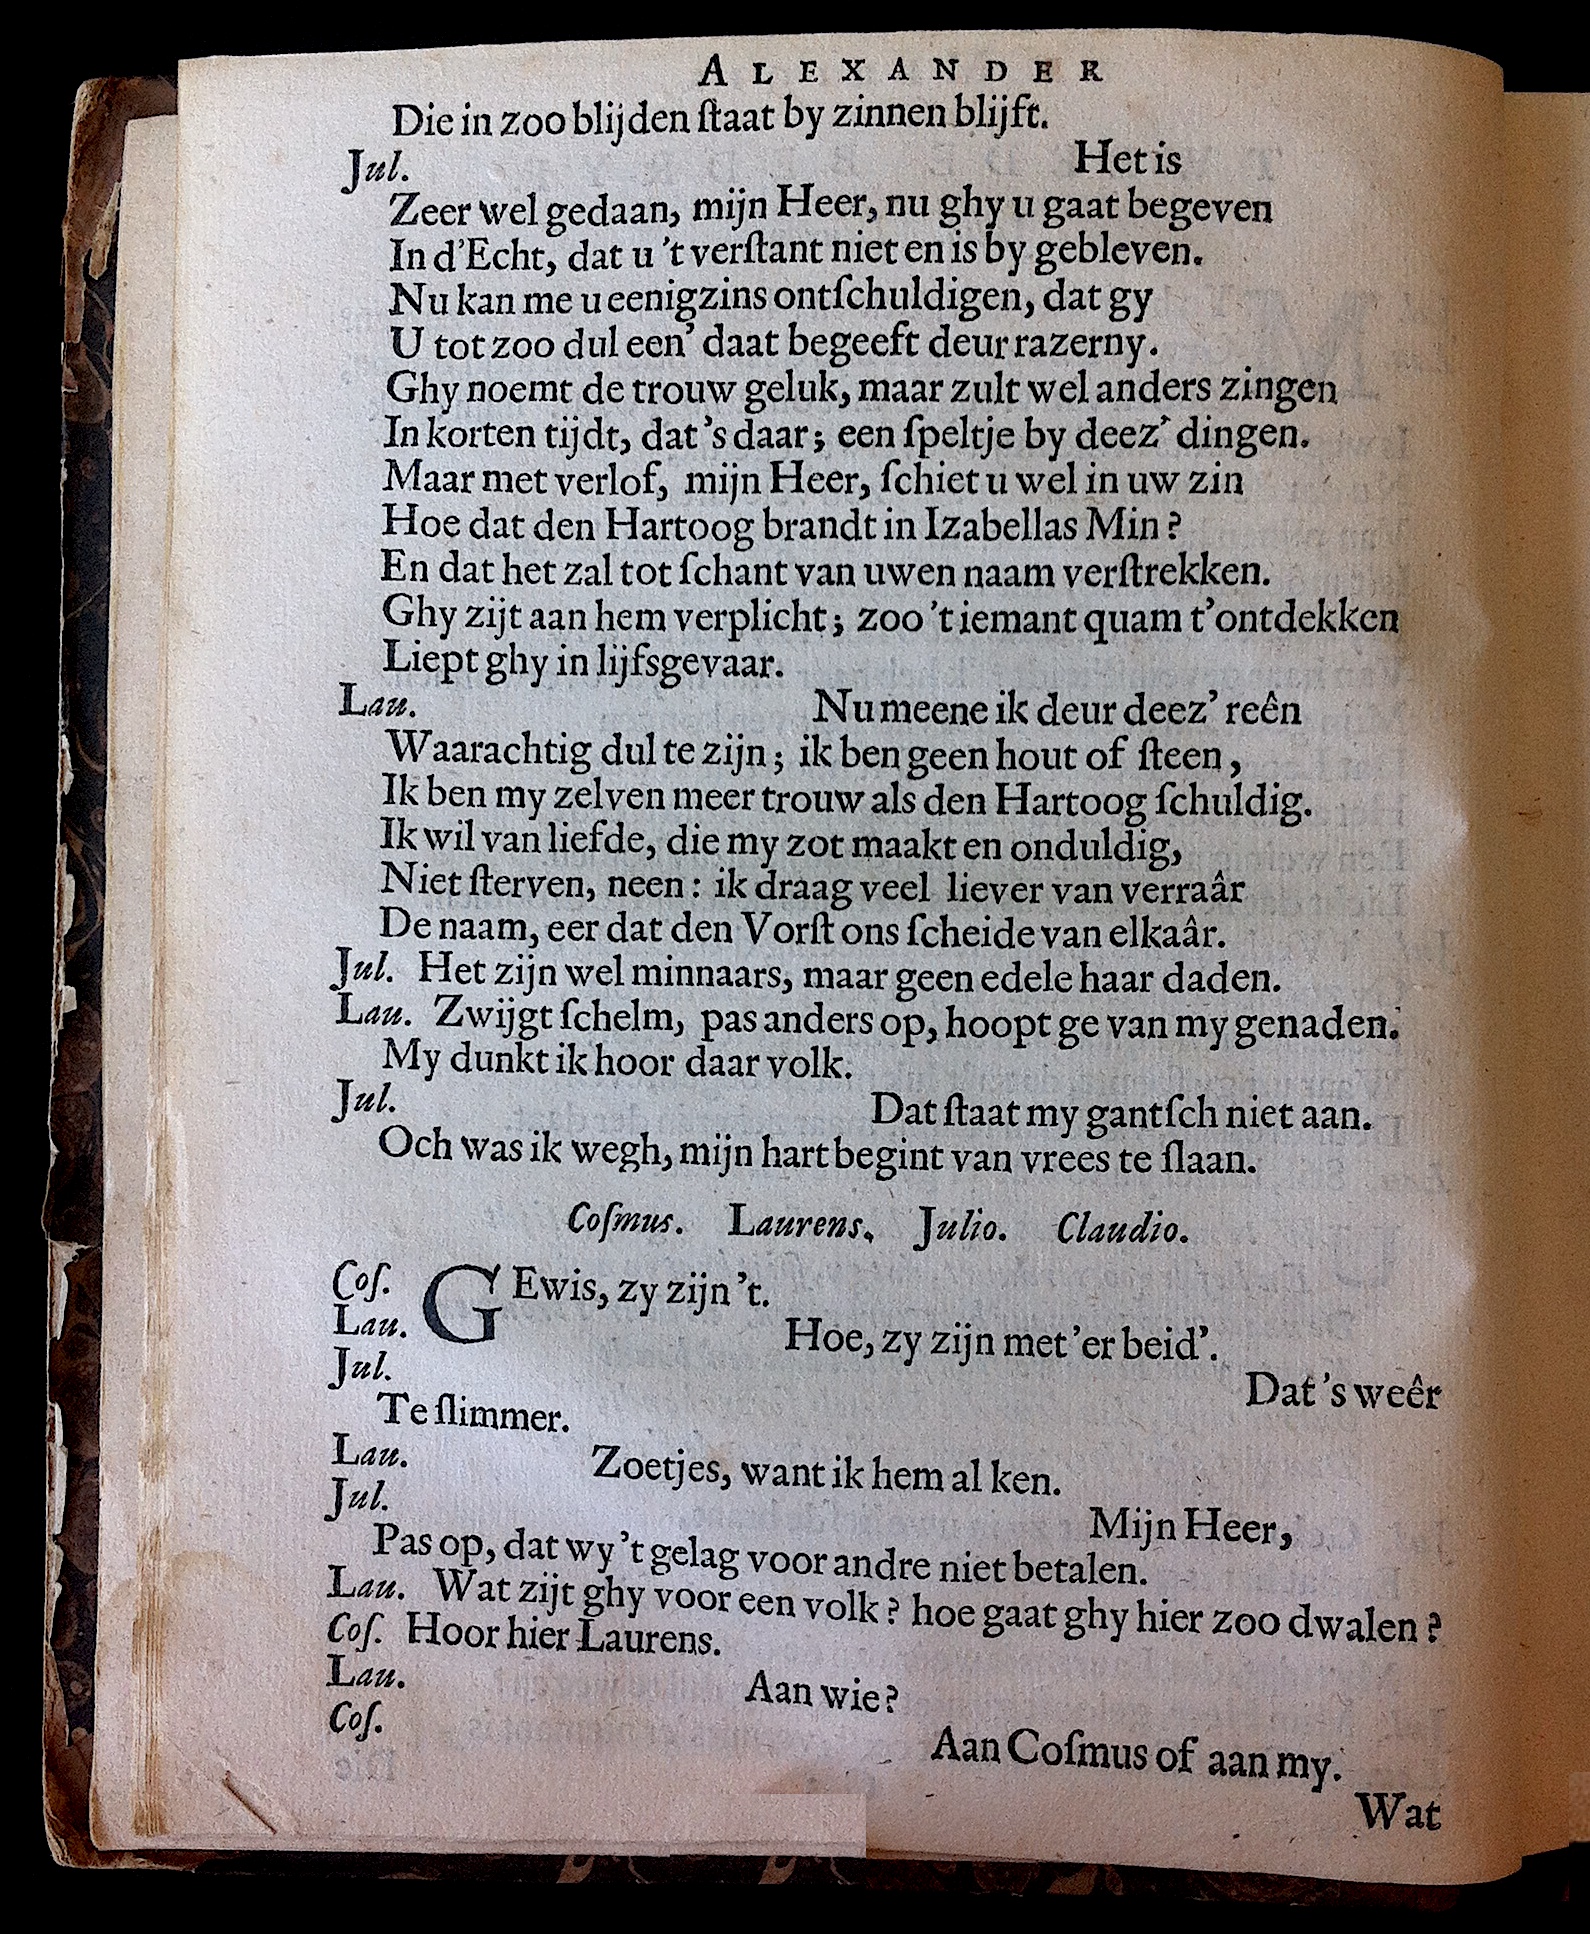 ALEXANDER
Die in zoo blijden ſtaat by zinnen blijft.
Jul. Het is
Zeer wel gedaan, mijn Heer, nu ghy u gaat begeven
In d'Echt, dat u 't verſtant niet en is by gebleven.
Nu kan me u eenigzins ontſchuldigen, dat gy
U tot zoo dul een' daat begeeft deur razerny.
Ghy noemt de trouw geluk, maar zult wel anders zingen
In korten tijdt, dat 's daar; een ſpeltje by deez' dingen.
Maar met verlof, mijn Heer, ſchiet u wel in uw zin
Hoe dat den Hartoog brandt in Izabellas Min?
En dat het zal tot ſchant van uwen naam verſtrekken.
Ghy zijt aan hem verplicht; zoo 't iemant quam t'ontdekken
Liept ghy in lijfsgevaar.
Lau. Nu meene ik deur deez' reên
Waarachtig dul te zijn; ik ben geen hout of ſteen,
Ik ben my zelven meer trouw als den Hartoog ſchuldig.
Ik wil van liefde, die my zot maakt en onduldig,
Niet ſterven, neen: ik draag veel liever van verraâr
De naam, eer dat den Vorſt ons ſcheide van elkaâr.
Jul. Het zijn wel minnaars, maar geen edele haar daden.
Lau. Zwijgt ſchelm, pas anders op, hoopt ge van my genaden.
My dunkt ik hoor daar volk.
Jul. Dat ſtaat my gantſch niet aan.
Och was ik wegh, mijn hart begint van vrees te ſlaan.
Coſmus. Laurens. Julio. Claudio.
Coſ. GEwis, zy zijn 't.
Lau. Hoe, zy zijn met 'er beid'.
Jul. Dat 's weêr
Te ſlimmer.
Lau. Zoetjes, want ik hem al ken.
Jul. Mijn Heer,
Pas op, dat wy 't gelag voor andre niet betalen.
Lau. Wat zijt ghy voor een volk? hoe gaat ghy hier zoo dwalen?
Coſ. Hoor hier Laurens.
Lau. Aan wie?
Coſ. Aan Coſmus of aan my.
Wat